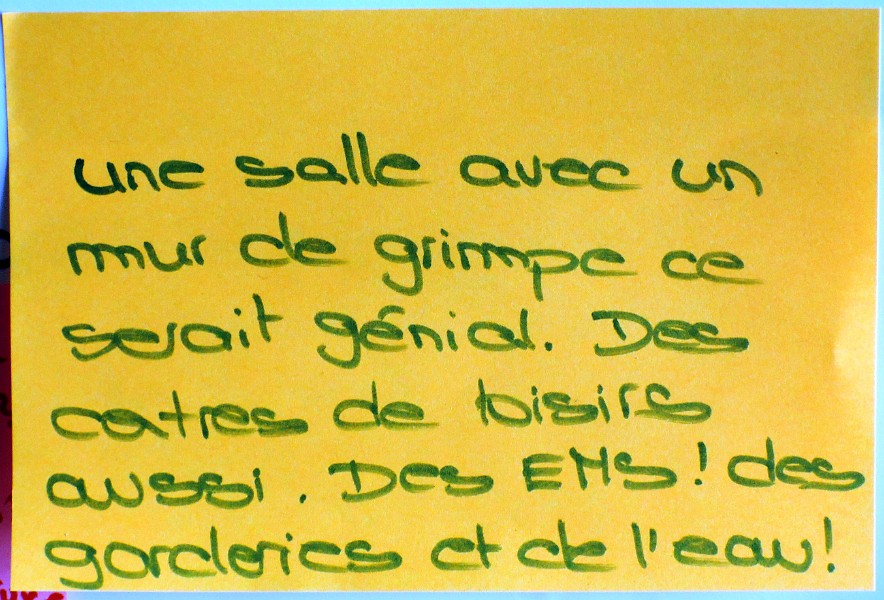 une salle avec un
mur de grimpe ce
serait génial. Des
catres de loisirs
aussi. Des EMS! des
garderies et de l'eau!